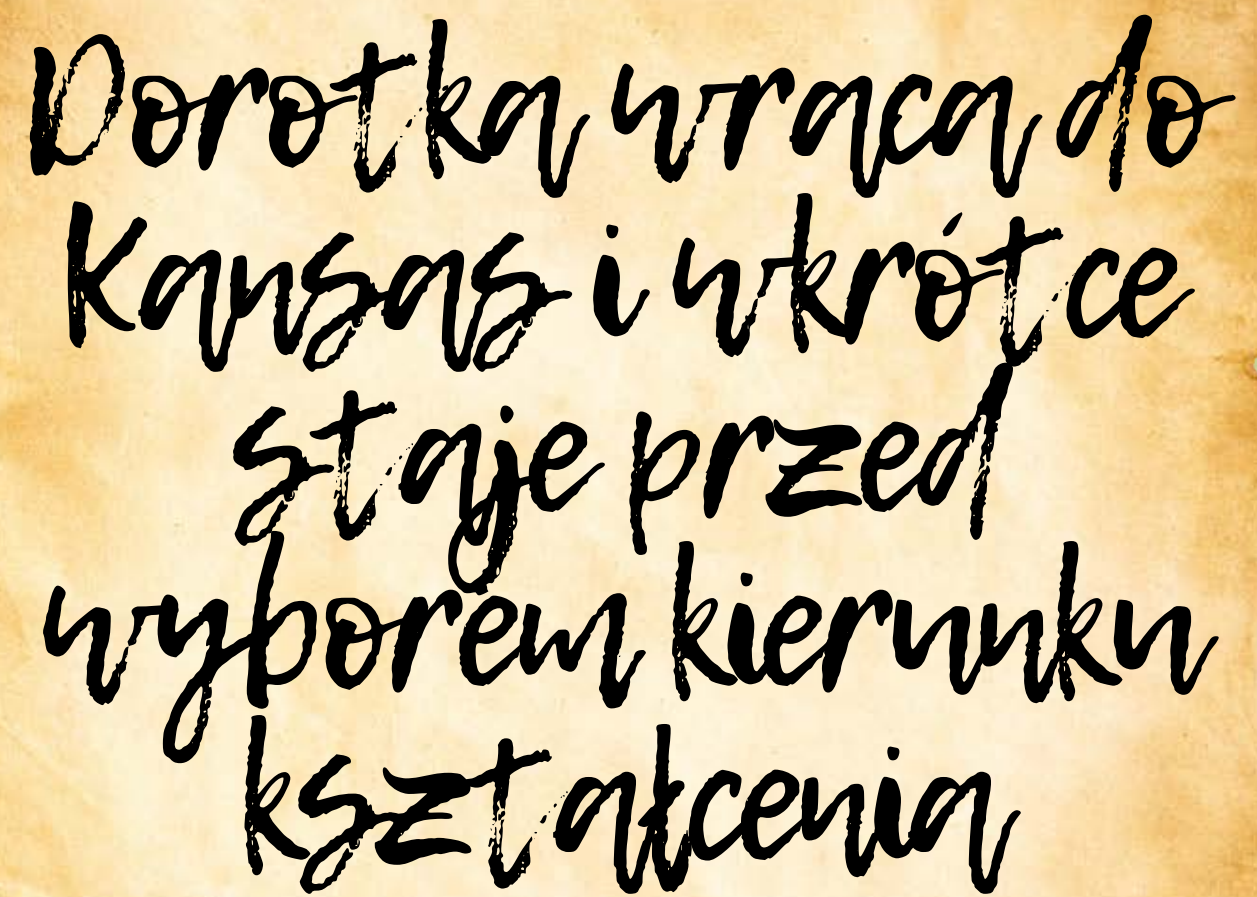 Dorotka wraca do
Kansas i wkrótce
staje przed
wyborem kierunku
kształcenia